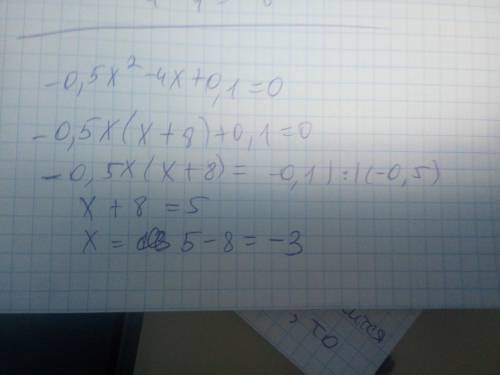 -0,5x² -4x+0,1=0
-0,5x(x+8)+0,1=0
-0,5x(x+8)= -0,1 |:|(-0,5)
x+8 =5
x= 5-8=-3